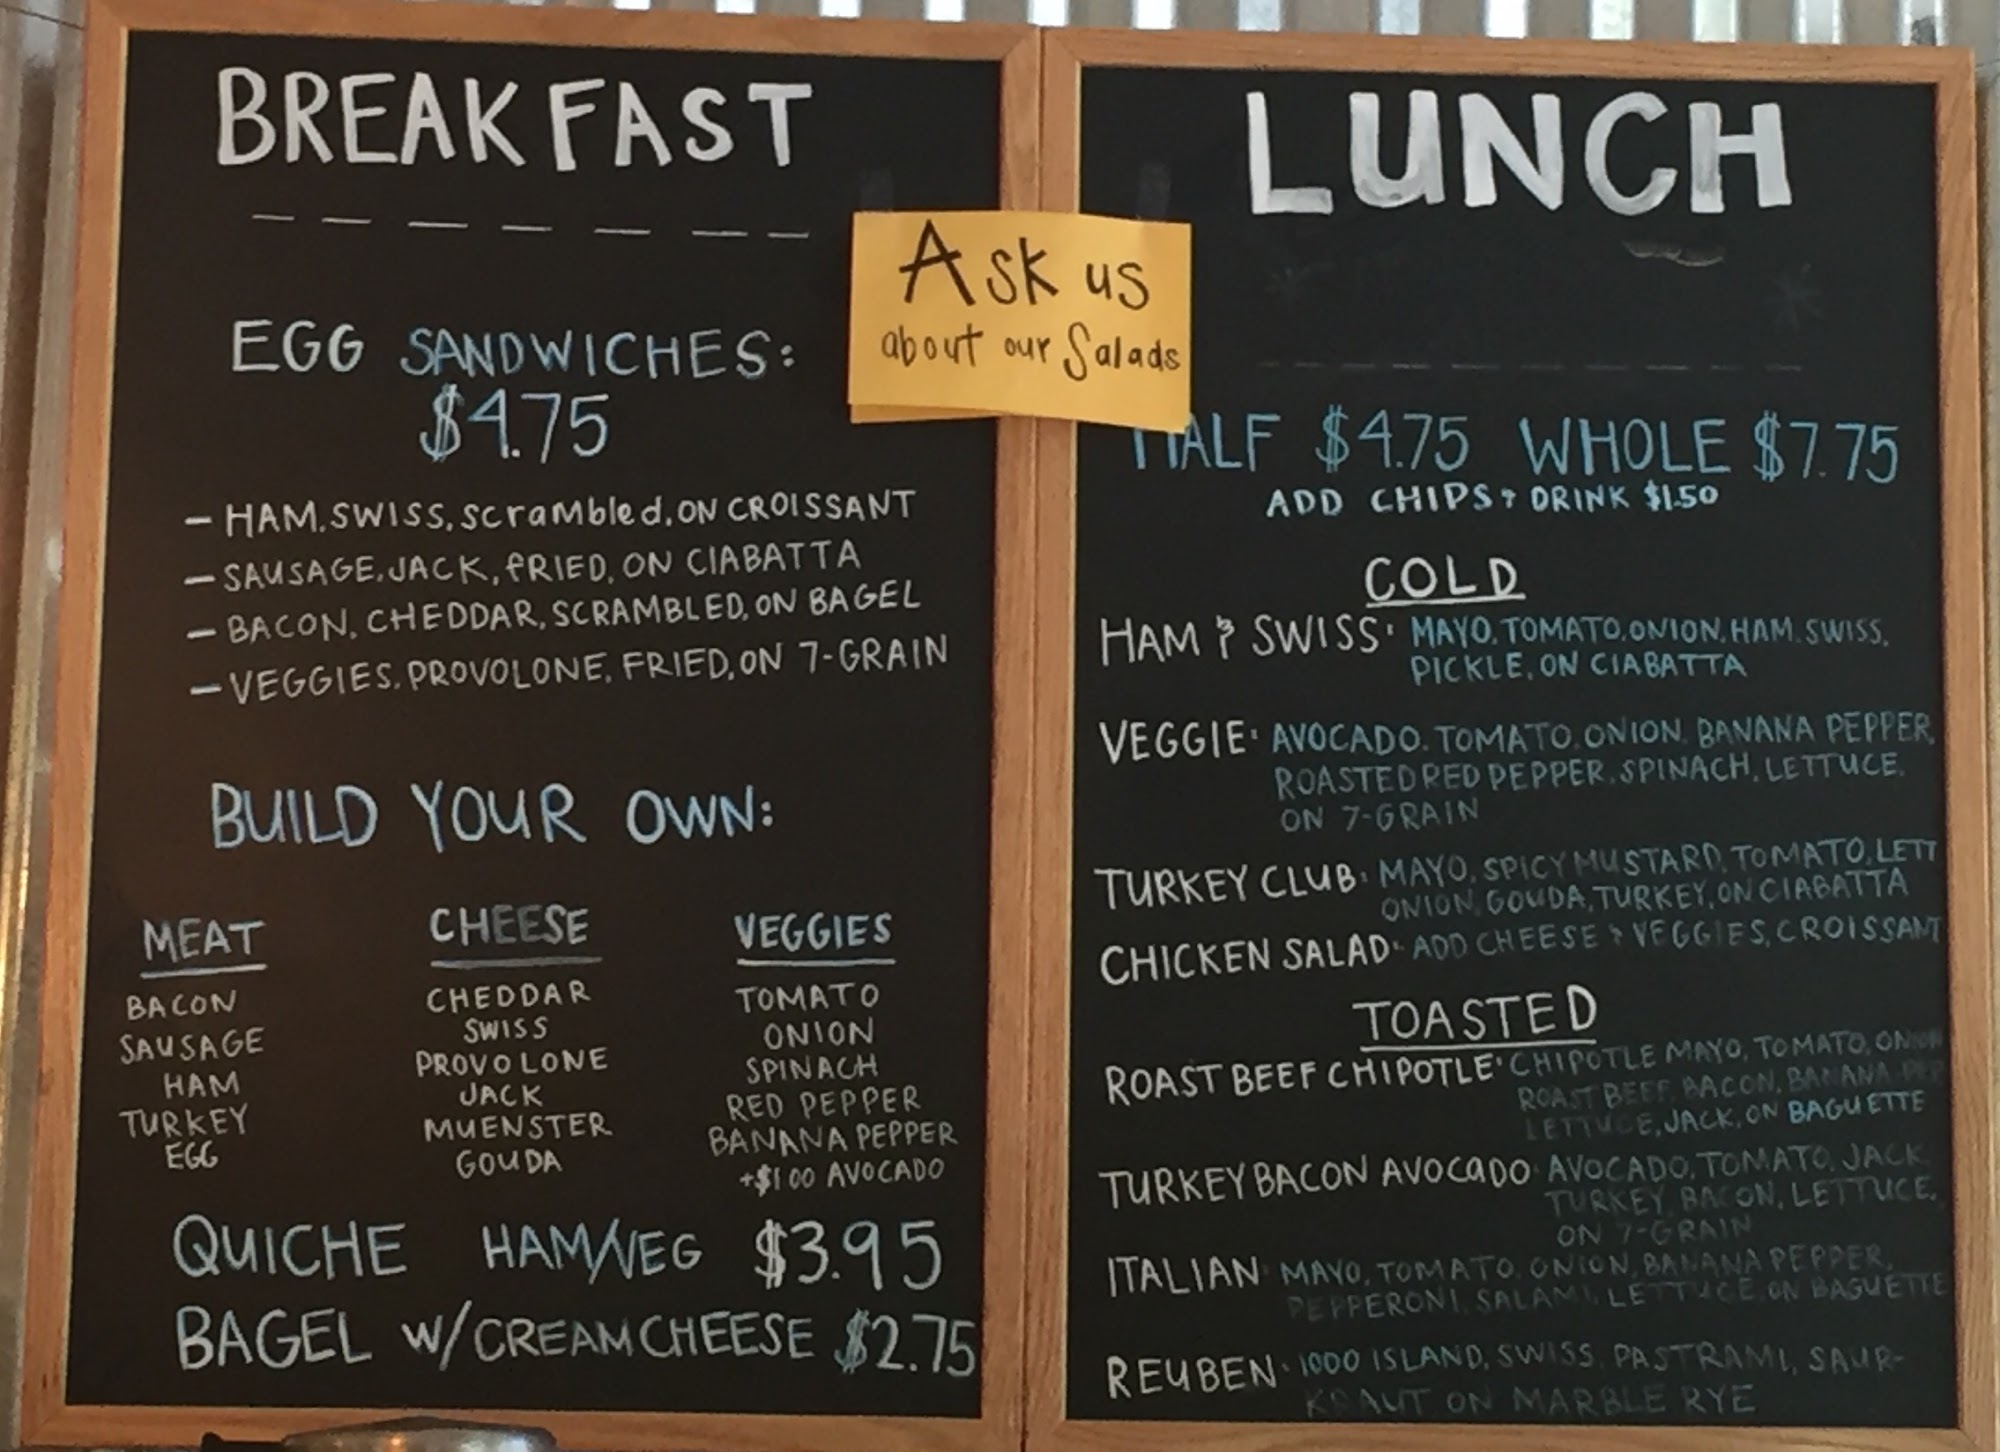 BREAKFAST
EGG SANDWICHES:
$4.75
- HAM, SWISS, scrambled, ON CROISSANT
- SAUSAGE, JACK, FRIED, ON CIABATTA
- BACON, CHEDDAR, SCRAMBLED, ON BAGEL
- VEGGIES, PROVOLONE, FRIED, ON 7-GRAIN
BUILD YOUR OWN:
MEAT
BACON
SAUSAGE
HAM
TURKEY
EGG
CHEESE
CHEDDAR
SWISS
PROVOLONE
JACK
MUENSTER
GOUDA
VEGGIES
TOMATO
ONION
SPINACH
RED PEPPER
BANANA PEPPER
+$1.00 AVOCADO
QUICHE HAM/VEG $3.95
BAGEL W/CREAMCHEESE $2.75
Ask us
about our Salads
LUNCH
HALF $4.75 WHOLE $7.75
ADD CHIPS & DRINK $1.50
COLD
HAM & SWISS: MAYO, TOMATO, ONION, HAM, SWISS,
PICKLE, ON CIABATTA
VEGGIE: AVOCADO, TOMATO, ONION, BANANA PEPPER,
ROASTED RED PEPPER, SPINACH, LETTUCE,
ON 7-GRAIN
TURKEY CLUB: MAYO, SPICY MUSTARD, TOMATO, LETT
ONION, GOUDA, TURKEY, ON CIABATTA
CHICKEN SALAD: ADD CHEESE & VEGGIES, CROISSANT
TOASTED
ROAST BEEF CHIPOTLE: CHIPOTLE MAYO, TOMATO, ONION
ROAST BEEF, BACON, BANANA PEP
LETTUCE, JACK, ON BAGUETTE
TURKEY BACON AVOCADO: AVOCADO, TOMATO, JACK
TURKEY, BACON, LETTUCE,
ON 7-GRAIN
ITALIAN: MAYO, TOMATO, ONION, BANANA PEPPER,
PEPPERONI, SALAMI, LETTUCE, ON BAGUETTE
REUBEN: 1000 ISLAND, SWISS, PASTRAMI, SAUR-
KRAUT ON MARBLE RYE